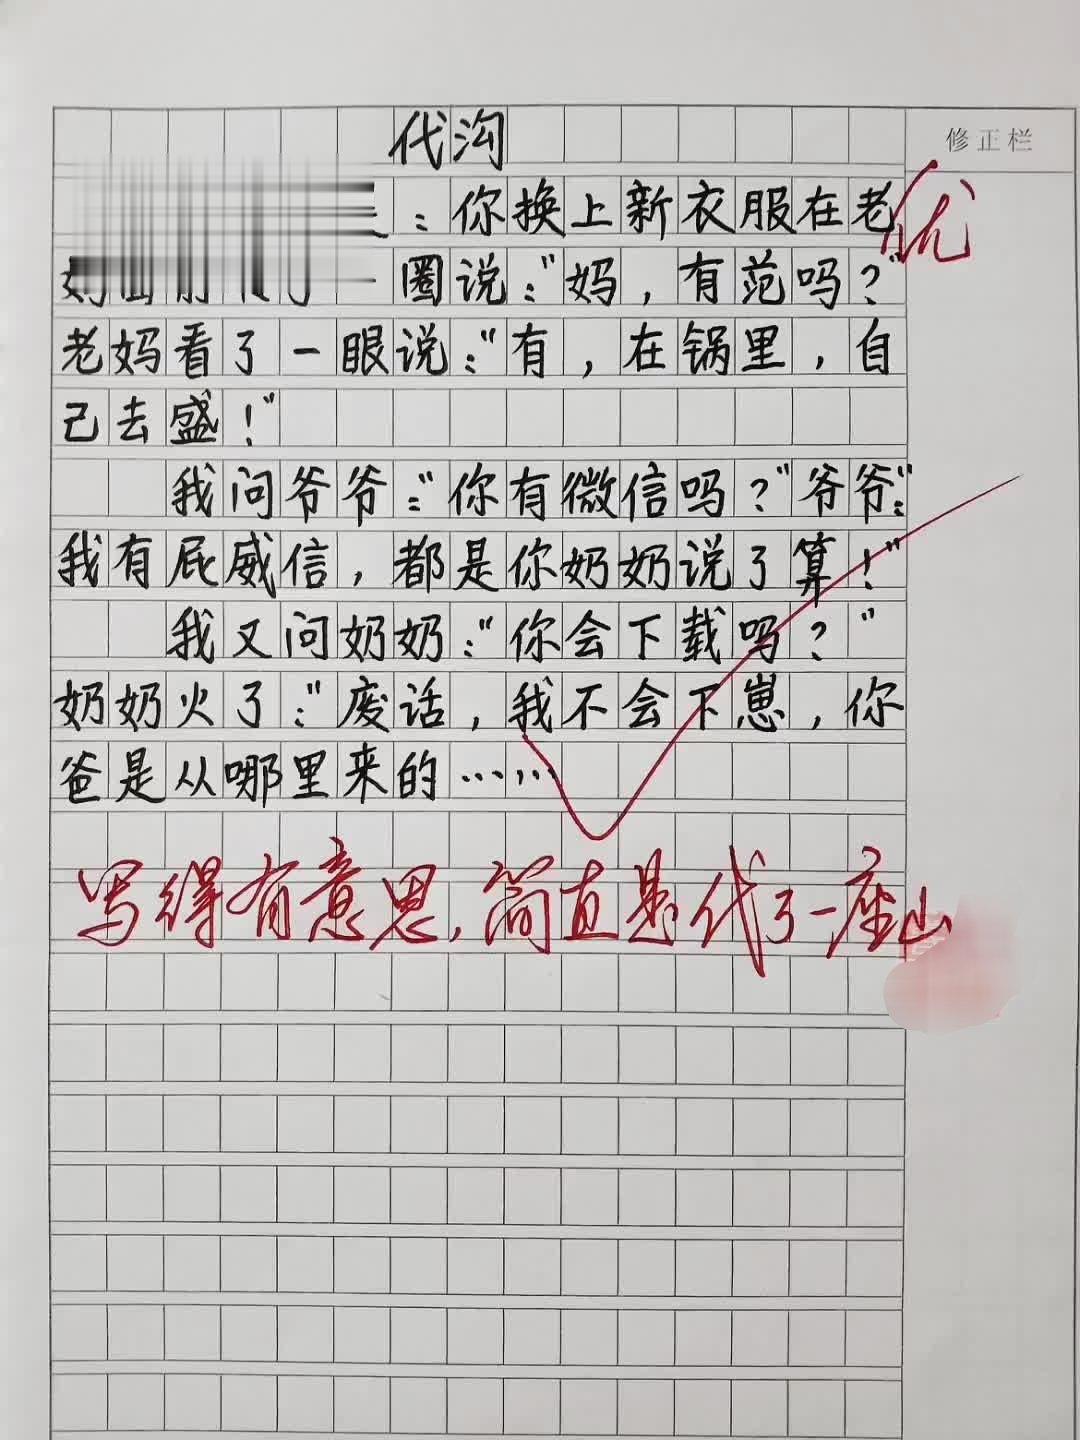 代沟
修正栏
：你换上新衣服在老
优
圈说：“妈，有范吗？”
老妈看了一眼说：“有，在锅里，自
己去盛！”
我问爷爷：“你有微信吗？”爷爷：“
我有屁威信，都是你奶奶说了算！”
我又问奶奶：“你会下载吗？”
奶奶火了：“废话，我不会下崽，你
爸是从哪里来的……
写得有意思，简直是代了一座山